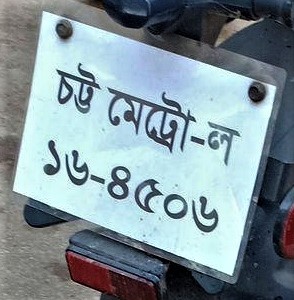 চট্ট মেট্রো-ল
১৬-৪৫০৬